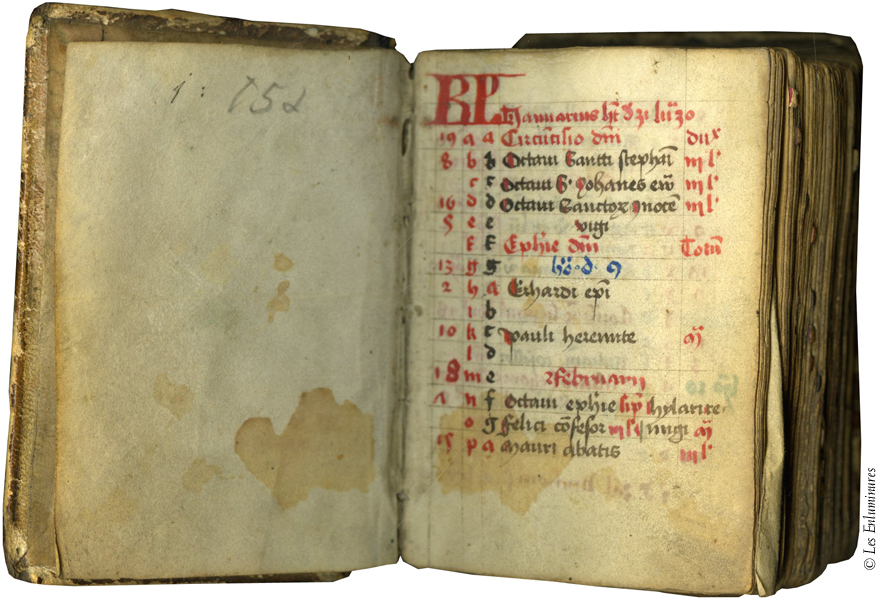 1 : 152
KL
Januarius ht dzi lu 30
19 a a Circucisio dni dux
8 b b Octava Sancti stephani iii l'
c c Octava S. Johanes ew iii l'
16 d d Octava Sanctor inoce iii l'
5 e e vigi
f f Ephie dni Totu
13 g g
2 h a Erhardi epi
i b
10 k c pauli heremite
l d
18 m e februarii
1 n f Octava ephie hylarii
o g felici cofesor iii l
15 p a mauri abatis iii l'
© Les Enluminures